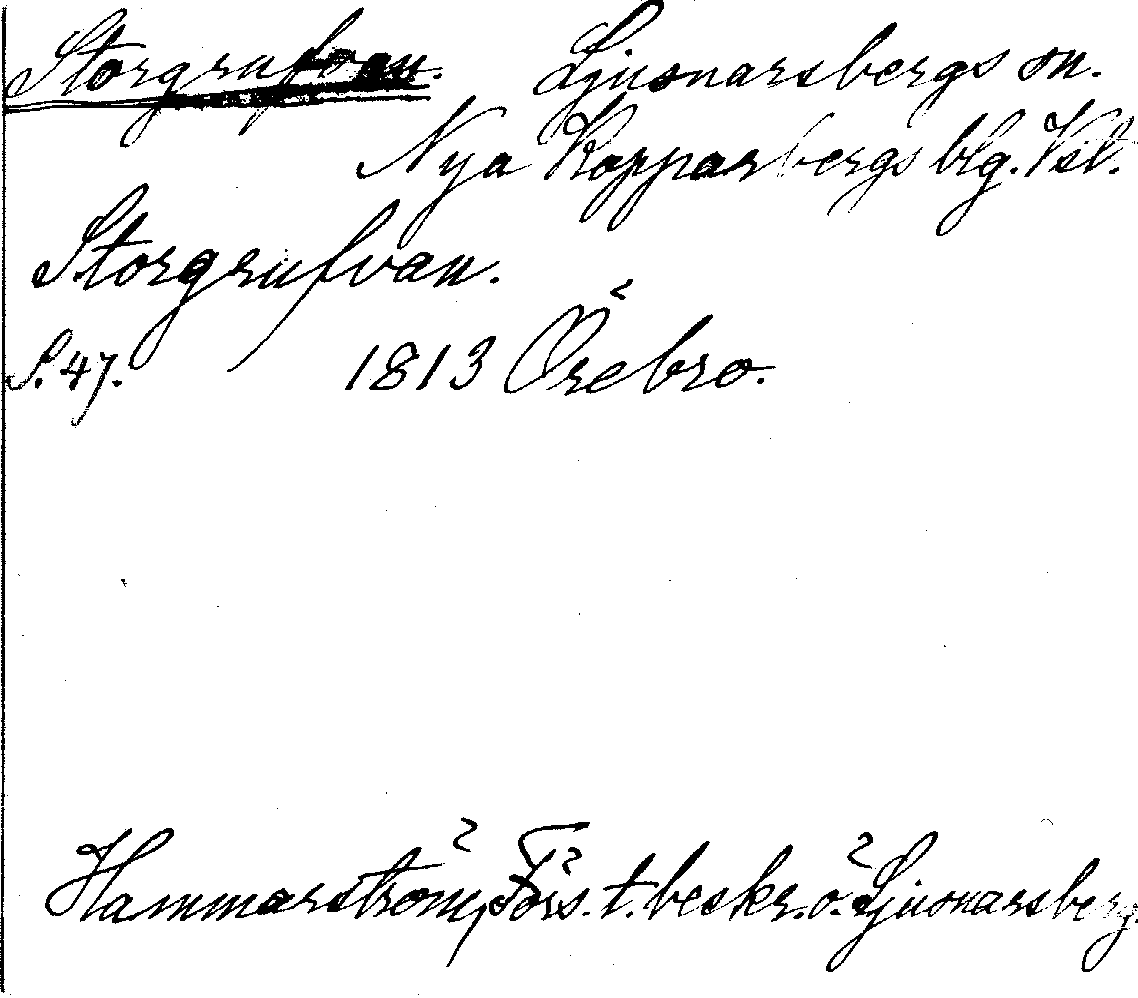 Storgrufvan. Ljusnarsbergs sn.
Nya Kopparbergs blg. Vstl.
Storgrufvan.
S. 47. 1813 Örebro.
Hammarström, Förs. t. beskr. ö. Ljusnarsberg.